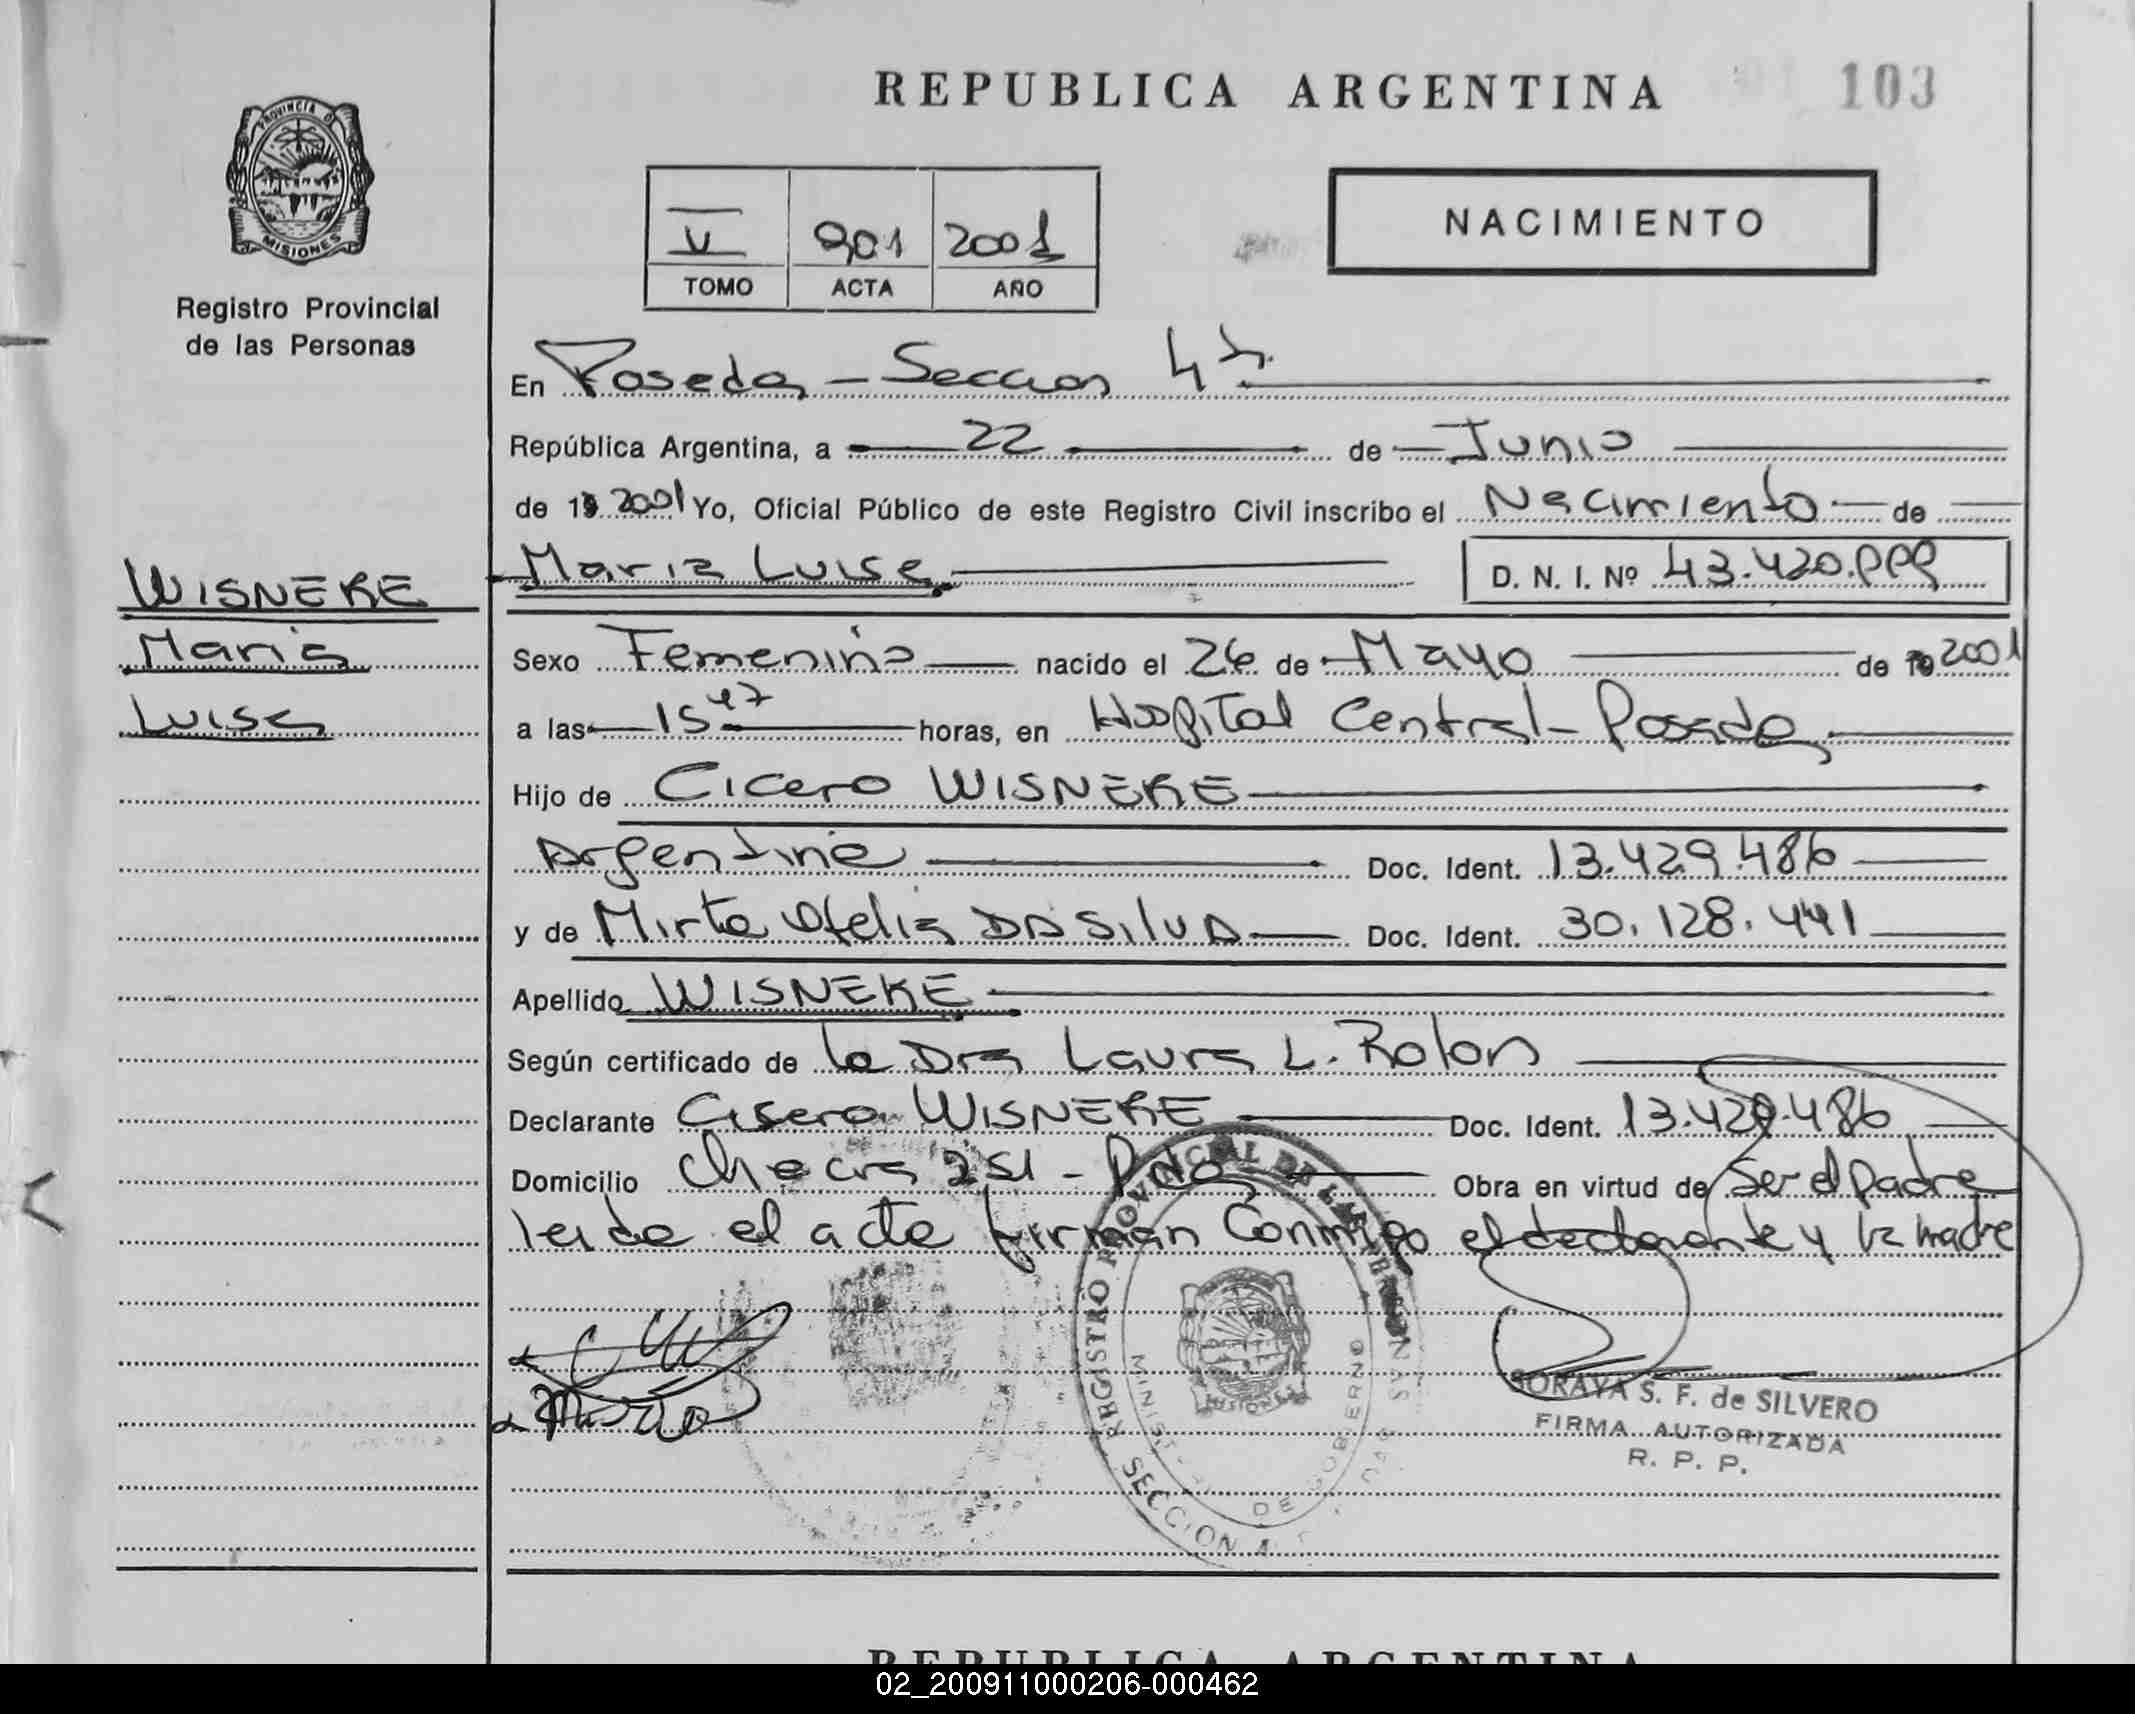 REPUBLICA ARGENTINA 103
PROVINCIA D
MISIONES
Registro Provincial
de las Personas
V 901 2001
TOMO ACTA AÑO
NACIMIENTO
En Posadas - Seccion 4ta.
República Argentina, a 22 de Junio
de 19 2001 Yo, Oficial Público de este Registro Civil inscribo el Nacimiento de
WISNEKE
Maria
Luisa
Maria Luisa D. N. I. Nº 43.420.999
Sexo Femenino nacido el 26 de Mayo de 19 2001
a las 15 47 horas, en Hospital Central - Posadas
Hijo de Cicero WISNEKE
Argentina Doc. Ident. 13.429.486
y de Mirta Ofelia DA SILVA Doc. Ident. 30.128.441
Apellido WISNEKE
Según certificado de la Dra Laura L. Rolon
Declarante Cisero WISNEKE Doc. Ident. 13.429.486
Domicilio Chacra 251 - Pdas Obra en virtud de Ser el padre
leida el acta firman Conmigo el declarante y la madre
REGISTRO PROVINCIAL DE LAS PERSONAS
MINISTERIO DE GOBIERNO
SECCION
SORAYA S. F. de SILVERO
FIRMA AUTORIZADA
R. P. P.
REPUBLICA ARGENTINA
02_200911000206-000462